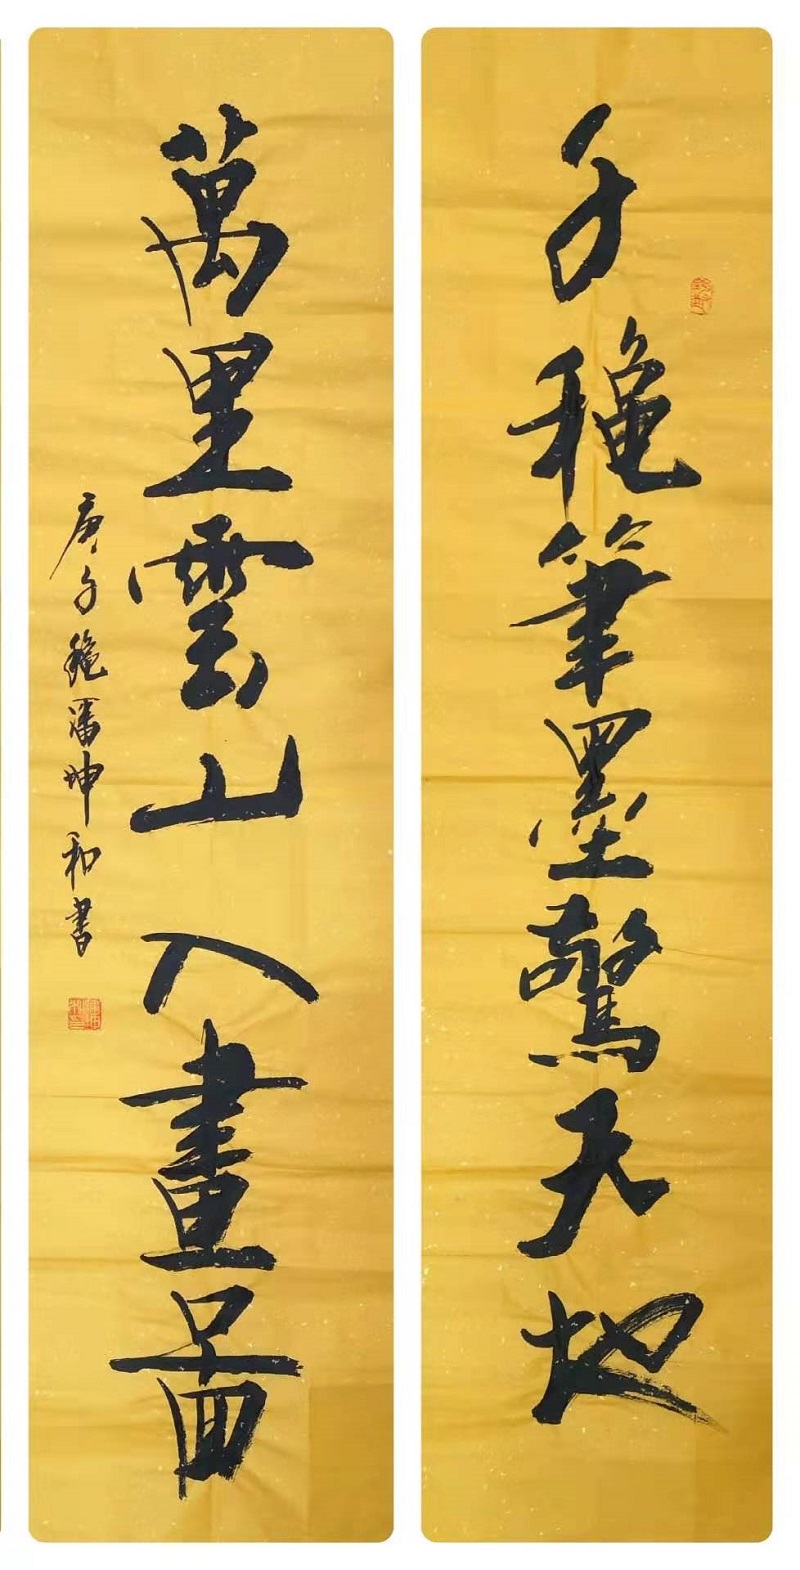 千穐筆墨驚天地
萬里雲山入畫啚
庚子穐潘坤和书